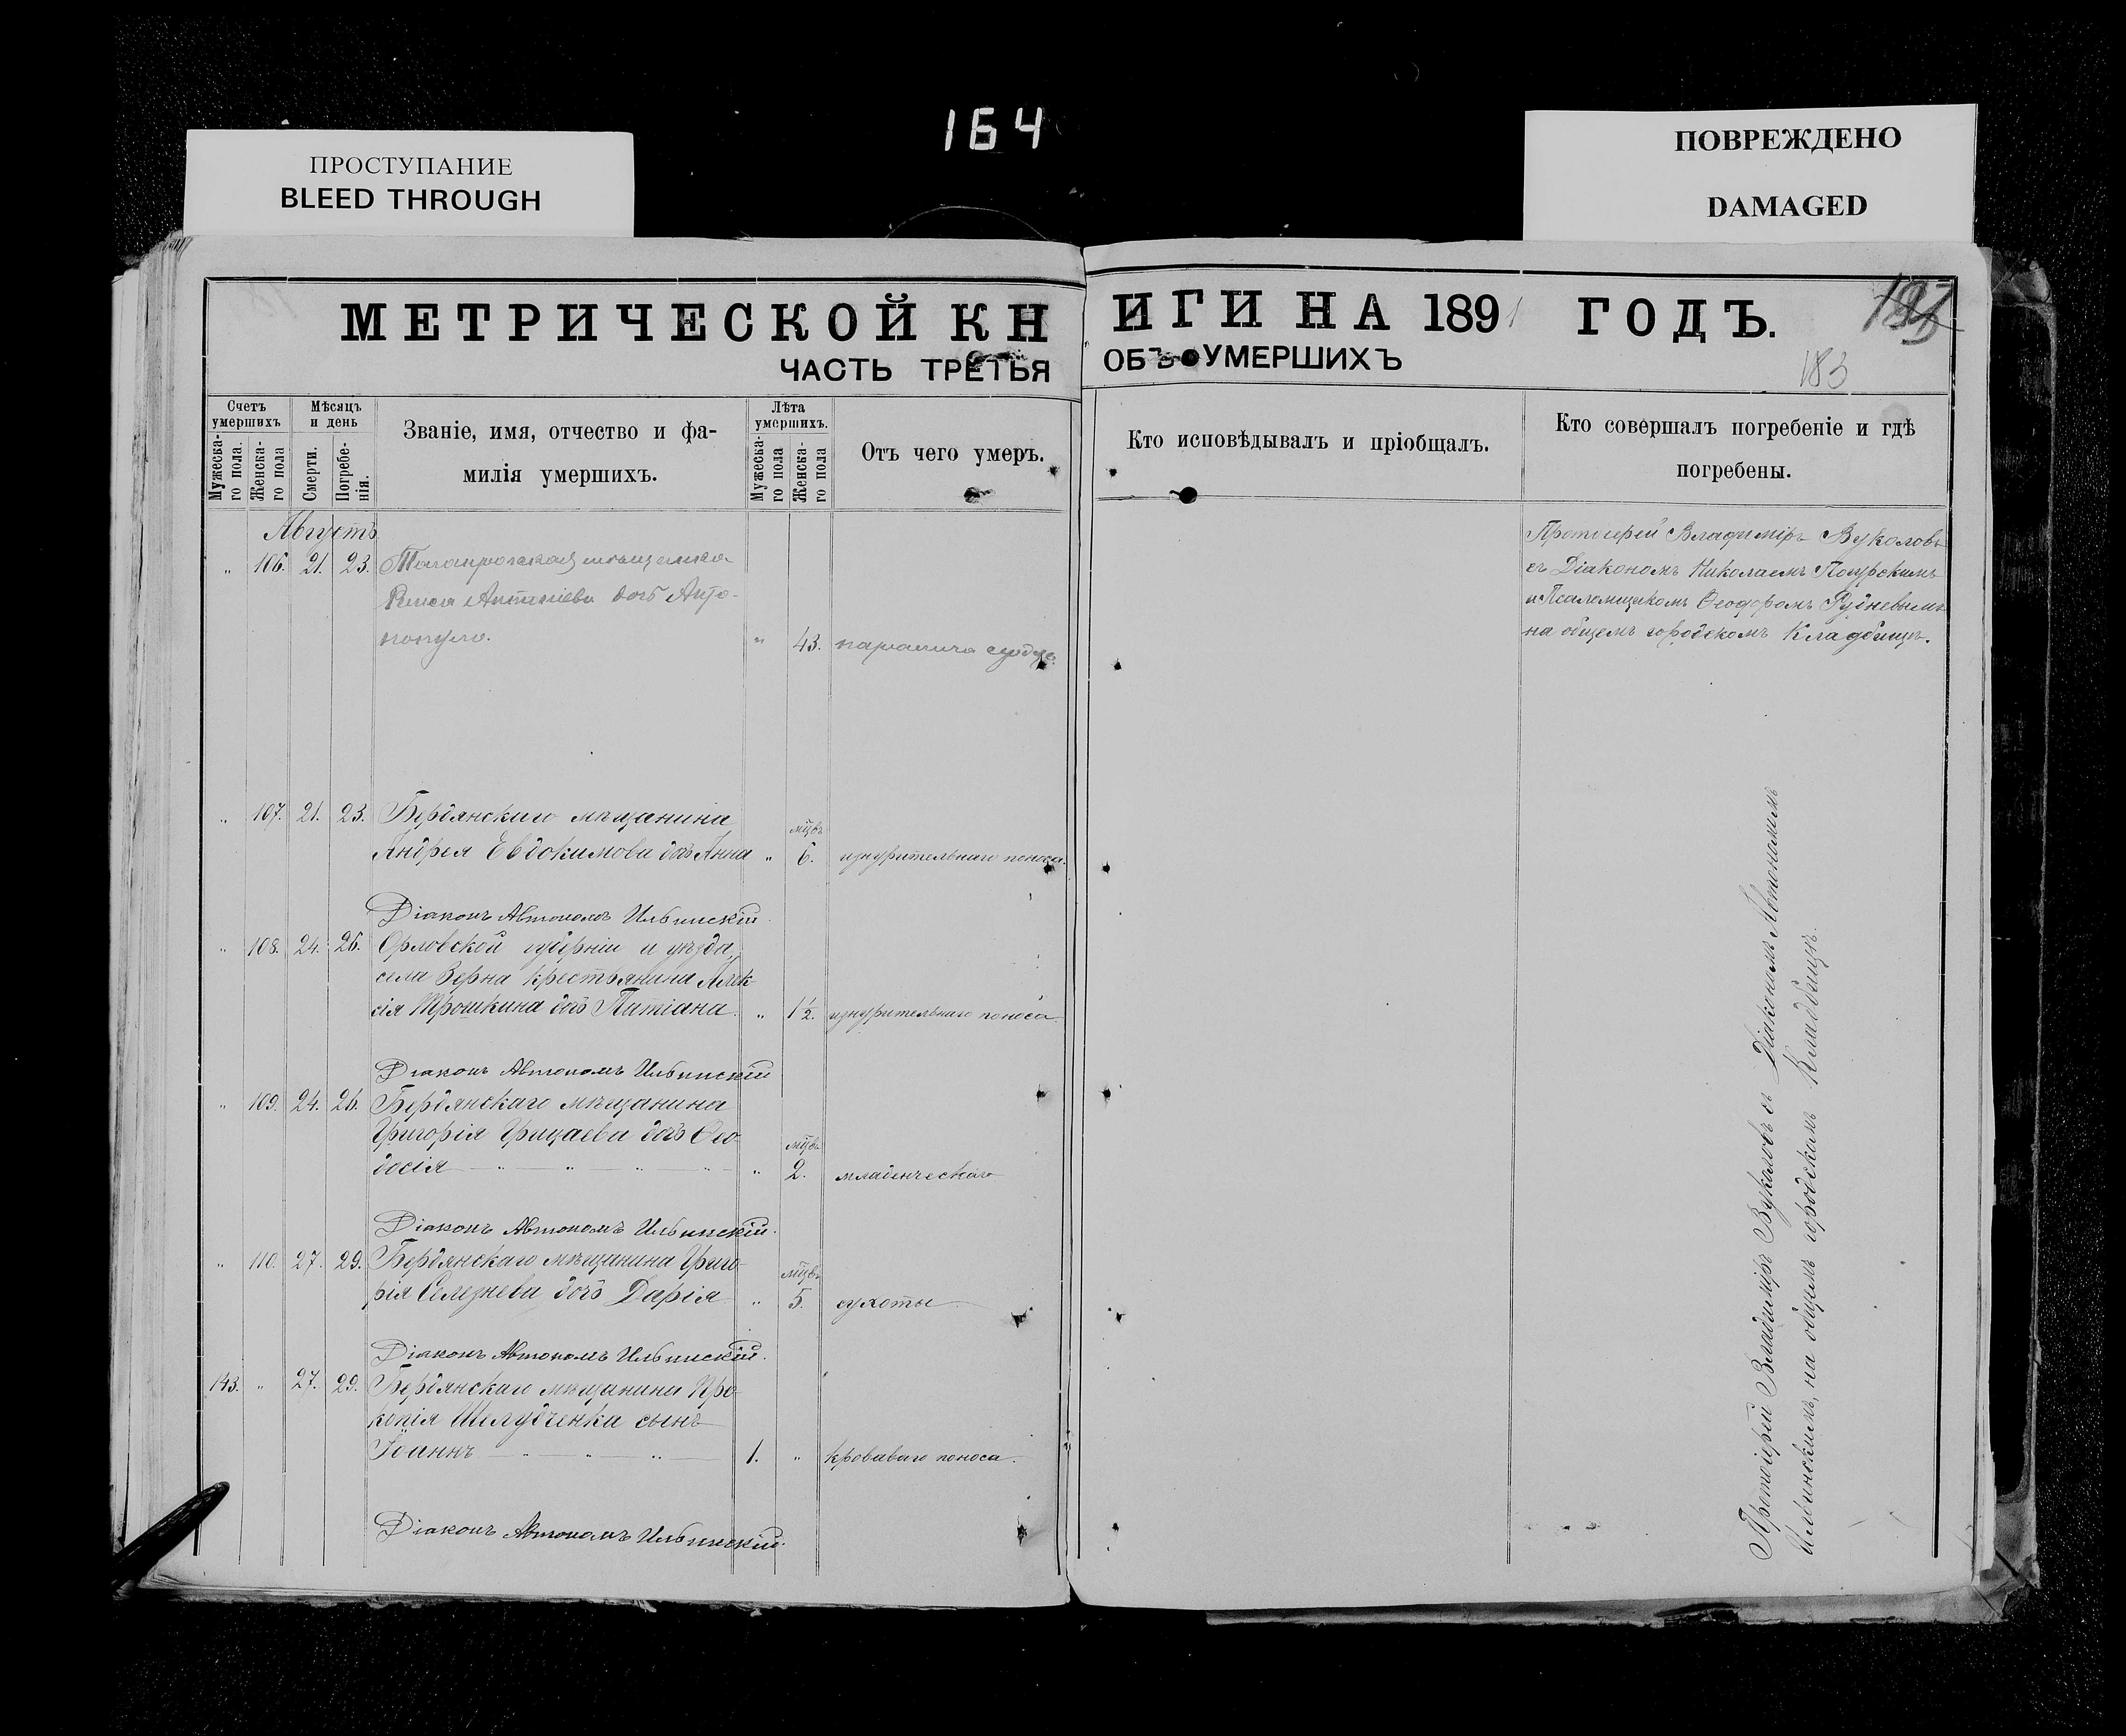 164
ПРОСТУПАНИЕ
BLEED THROUGH
ПОВРЕЖДЕНО
DAMAGED
МЕТРИЧЕСКОЙ КНИГИ НА 1891 ГОДЪ.
ЧАСТЬ ТРЕТЬЯ ОБЪ УМЕРШИХЪ
183
Счетъ умершихъ
Мужеска-го пола.
Женска-го пола
Мѣсяцъ и день
Смерти.
Погребе-нія.
Званіе, имя, отчество и фа-
милія умершихъ.
Лѣта умершихъ.
Мужеска-го пола
Женска-го пола
Отъ чего умеръ.
Кто исповѣдывалъ и пріобщалъ.
Кто совершалъ погребеніе и гдѣ
погребены.
Августъ
„ 106. 21. 23. Таганрогская мѣщанка
дочь Андро-
популо. „ 43. паралича сердца.
Протоіерей Владиміръ Вуколовъ
съ Діакономъ Николаемъ
и Псаломщикомъ Ѳеодоромъ Рудневымъ
на общемъ городскомъ Кладбищѣ.
„ 107. 21. 23. Бердянскаго мѣщанина
Андрея Евдокимова дочь Анна „ мцвъ 6. изнурительнаго поноса.
Діаконъ Автономъ Ильинскій
„ 108. 24. 26. Орловской губерніи и уѣзда,
села крестьянина Алек-
сія Трошкина дочь Татіана. „ 1½. изнурительнаго поноса
Діаконъ Автономъ Ильинскій
„ 109. 24. 26. Бердянскаго мѣщанина
Григорія Грицаева дочь Ѳео-
досія „ мцвъ 2. младенческаго
Діаконъ Автономъ Ильинскій.
„ 110. 27. 29. Бердянскаго мѣщанина Григо-
рія Селезнева дочь Дарія „ мцвъ 5. сухоты
Діаконъ Автономъ Ильинскій.
143. „ 27. 29. Бердянскаго мѣщанина Про-
копія Шелудченка сынъ
Іоаннъ 1. „ кроваваго поноса.
Діаконъ Автономъ Ильинскій.
Протоіерей Владиміръ Вуколовъ съ Діакономъ Автономомъ
Ильинскимъ, на общемъ городскомъ Кладбищѣ.